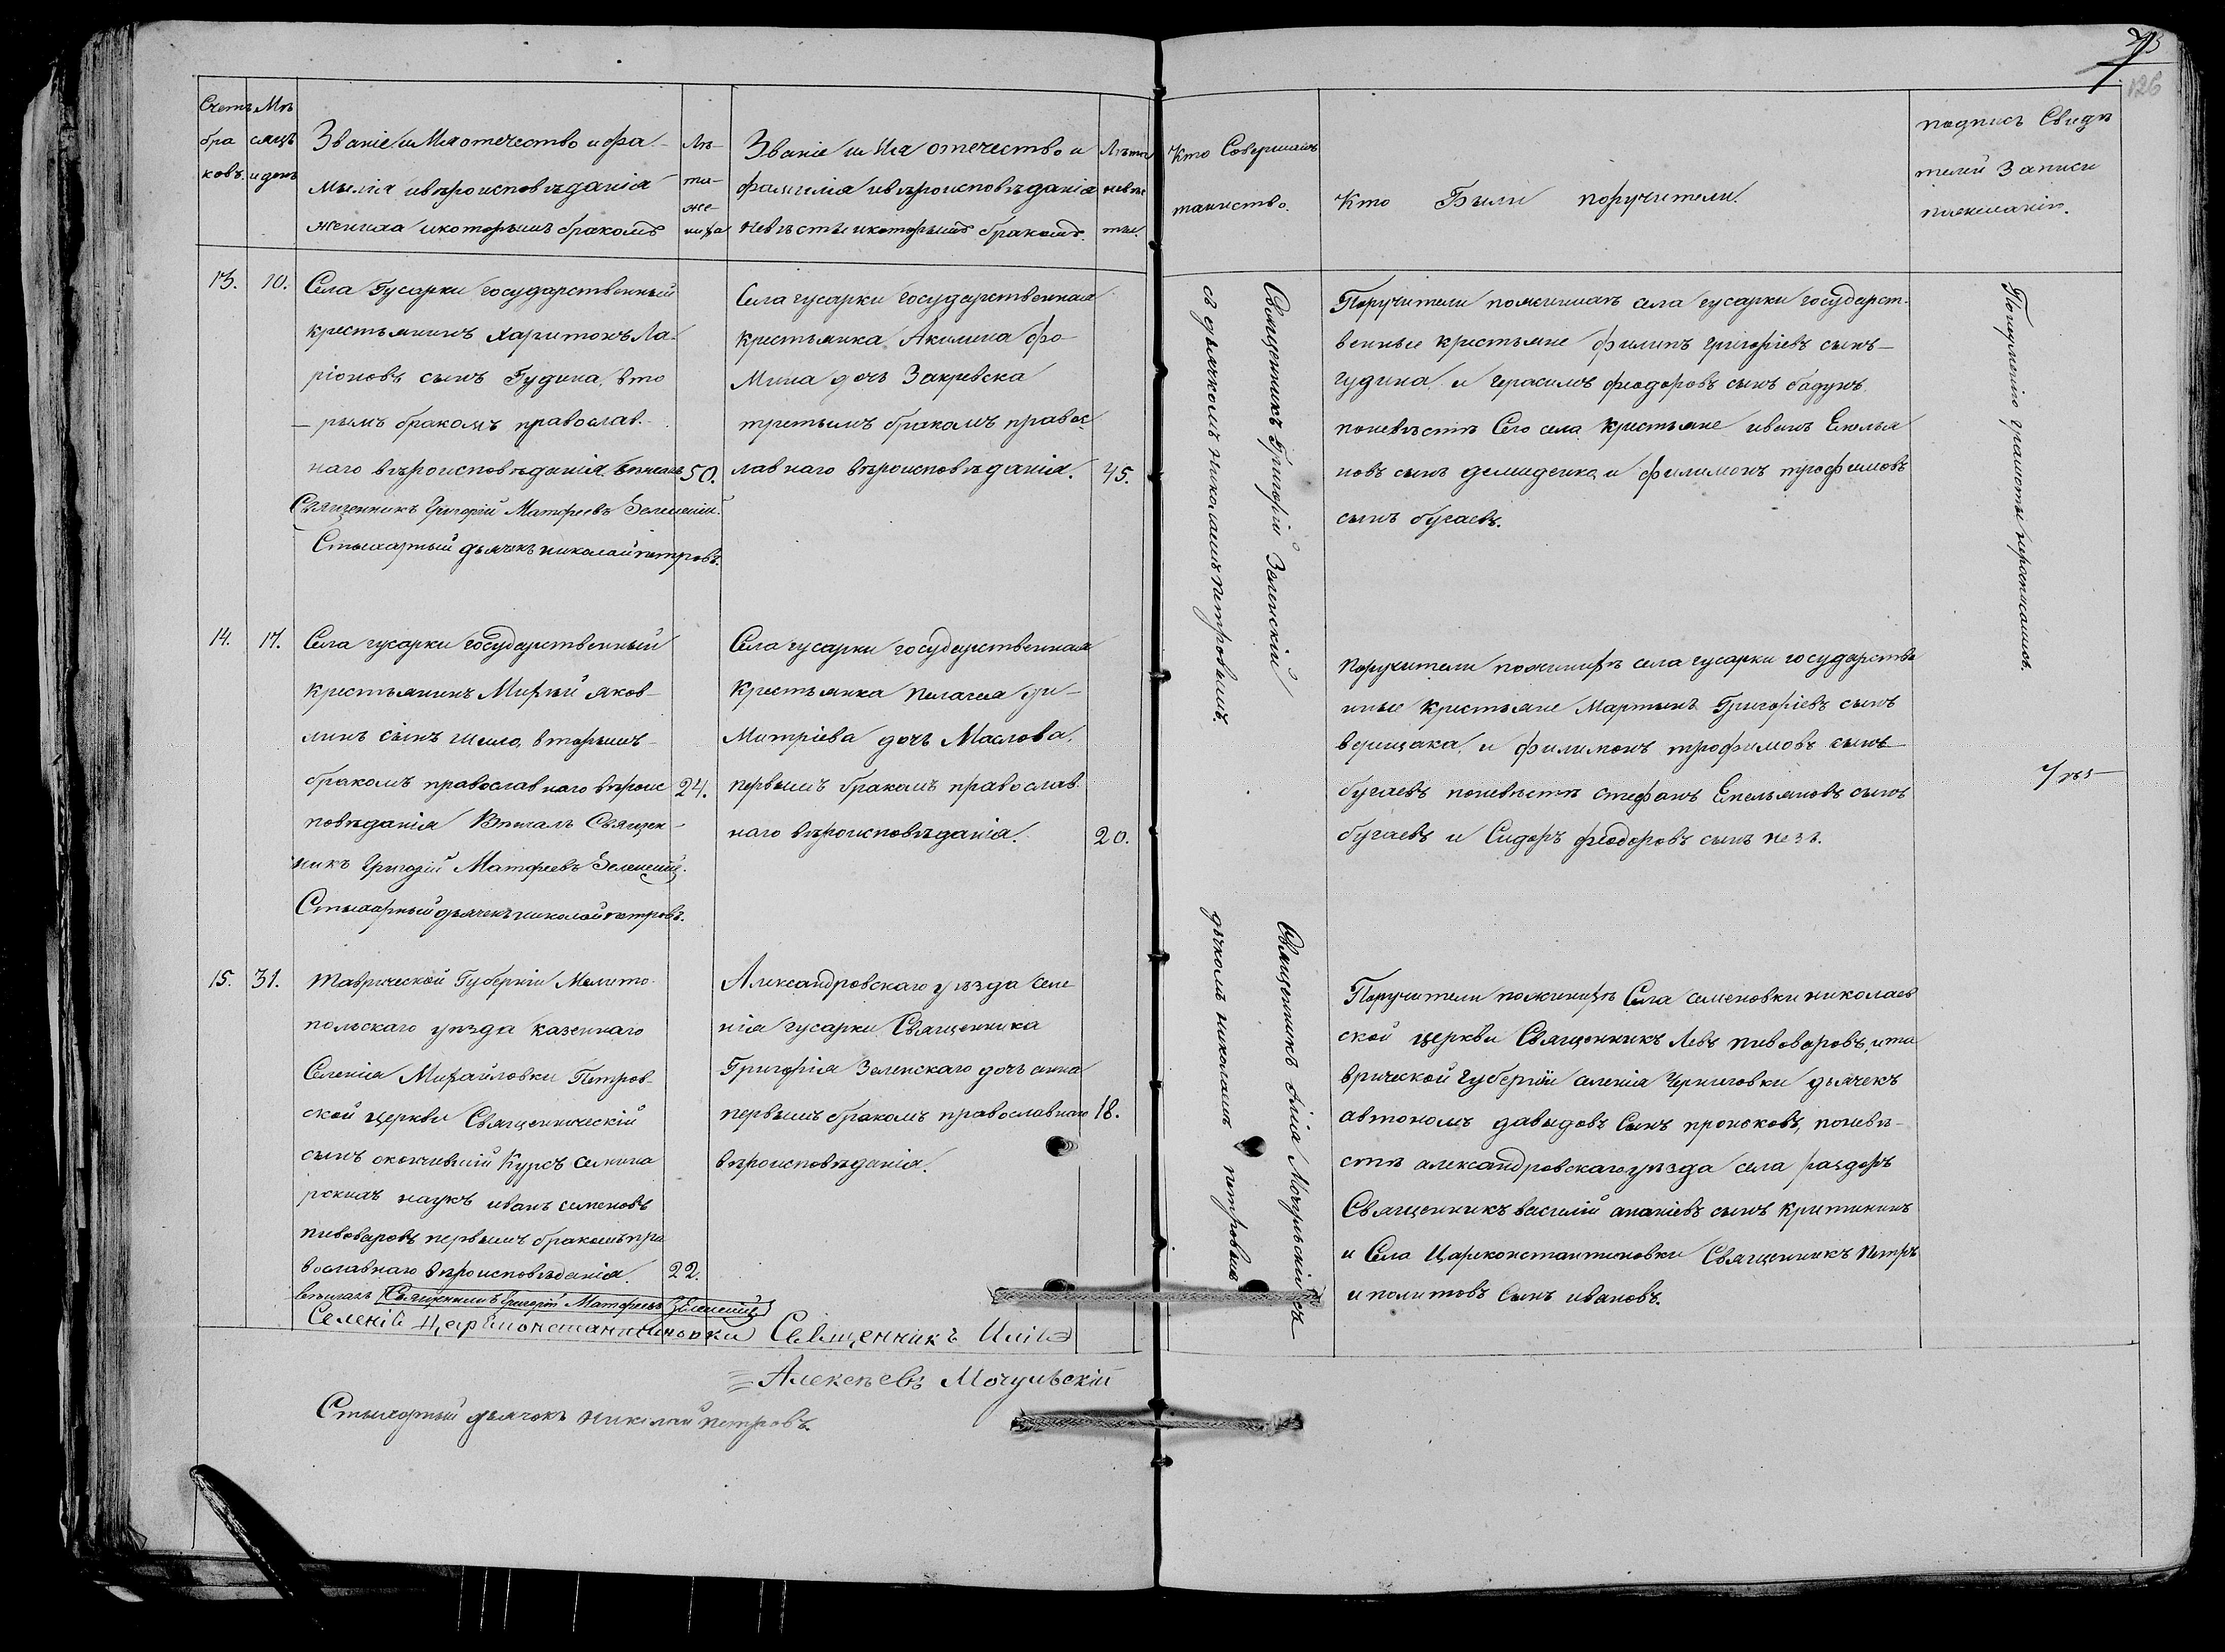 126
Счетъ
бра
ковъ.
Мѣ
сяцъ
и день
Званіе Имя отечество и фа-
милія и вѣроисповѣданія
жениха и которымъ бракомъ
Лѣ-
та
же-
ниха
Званіе и Имя отечество и
фамилія и вѣроисповѣданія
невѣсты и которымъ бракомъ.
Лѣта
невѣс
ты.
Кто Совершалъ
таинство.
Кто Были поручители.
подпись Свидѣ
телей Записи
13.
10.
Села Гусарки государственный
крестьянинъ Харитонъ Ла-
ріоновъ сынъ Гудина, вто
- рымъ бракомъ православ-
наго вѣроисповѣданія. Венчалъ
50.
Священникъ Григорій Матфеевъ Зеленскій.
Стихарный дьячекъ николай петровъ.
Села гусарки государственная
крестьянка Акилина фо-
Мина дочь Закревска
третьимъ бракомъ правос
лавнаго вѣроисповѣданія.
45.
Священникъ Григорій Зеленскій
съ дьячкомъ николаемъ петровымъ.
Поручители по женихѣ села гусарки государст-
венные крестьяне филипъ григоріевъ сынъ-
гудина, и герасимъ феодоровъ сынъ бадунъ
по невѣстѣ Сего села крестьяне иванъ Емелья
новъ сынъ демиденка, и филимонъ трофимовъ
сынъ бугаевъ.
14.
17.
Села гусарки государственный
крестьянинъ Михѣй яков-
линъ сынъ шило, вторымъ-
бракомъ православнаго вѣроис
24.
повѣданія Вѣнчалъ Священ-
никъ Григорій Матфеевъ Зеленскій.
Стихарный дьячекъ николай петровъ.
Села гусарки государственная
Крестьянка Пелагея ди-
Митріева дочь Маслова,
первымъ бракомъ православ.
наго вѣроисповѣданія.
20.
поручители по женихѣ села гусарки государстве
нные крестьяне Мартынъ Григоріевъ сынъ
верещака, и филимонъ трофимовъ сынъ-
бугаевъ по невѣстѣ стефанъ Емельяновъ сынъ
бугаевъ и Сидоръ феодоровъ сынъ незъ.
15.
31.
Таврической Губерніи Мелито-
польскаго уѣзда казеннаго
Селенія Михайловки Петров-
ской церкви Священническій
сынъ окончившій Курсъ семина
рскихъ наукъ иванъ семеновъ
пивоваровъ первымъ бракомъ пра
вославнаго вѣроисповѣданія.
22.
венчалъ Священникъ Григорій Матфеевъ Зеленскій
Александровскаго уѣзда Селе
нія гусарки Священника
Григорія Зеленскаго дочь анна
первымъ бракомъ православнаго
18.
вѣроисповѣданія.
Священникъ иліа Мочульскій съ
дьчкомъ николаемъ петровым
Поручители по женихѣ Села семеновки николаев
ской церкви Священникъ Левъ пивоваровъ, и та
врической губерніи селенія Черниговки дьячекъ
автономъ давыдовъ Сынъ пронсковъ, по невѣ-
стѣ александровскаго уѣзда села раздоръ
Священникъ василій ананіевъ сынъ критининъ
и Села Цареконстантиновки Священникъ Петръ
иполитовъ Сынъ ивановъ.
Селенія Цареконстантиновки Священникъ Иліа
Алексѣевъ Мочульскій
Стихарный дьячокъ николай петровъ.